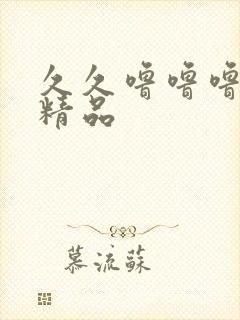 久久噜噜噜
精品
慕流苏